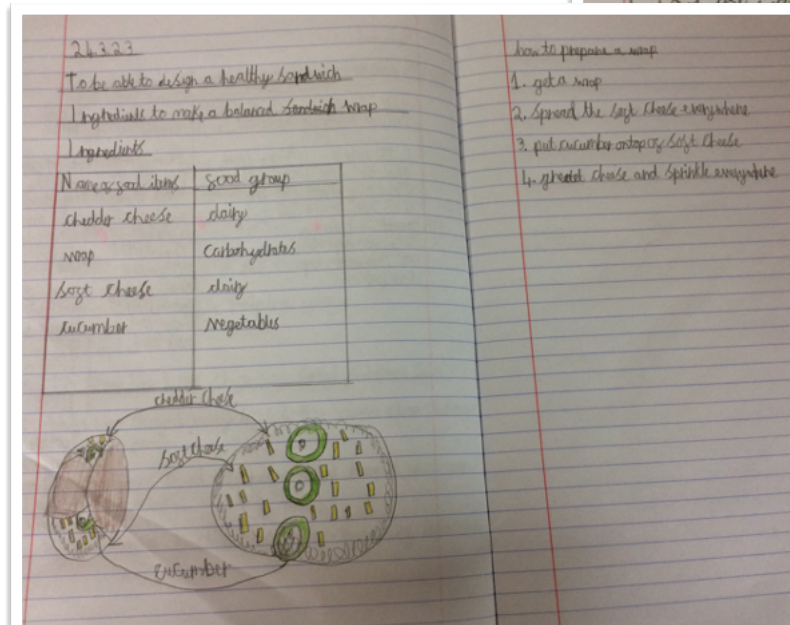 24.3.23
To be able to design a healthy sandwich
Inghediens to make a balanced sandwich wrap
Inghedients
Name of food items food group
chedder cheese dairy
wrap carbohydrates
soft cheese dairy
cucumber vegetables
chedder cheese
soft cheese
cucumber
how to prepare a wrap
1. get a wrap
2. Spread the soft cheese everywhere
3. put cucumber ontop of soft cheese
4. cheese and sprinkle everywhere